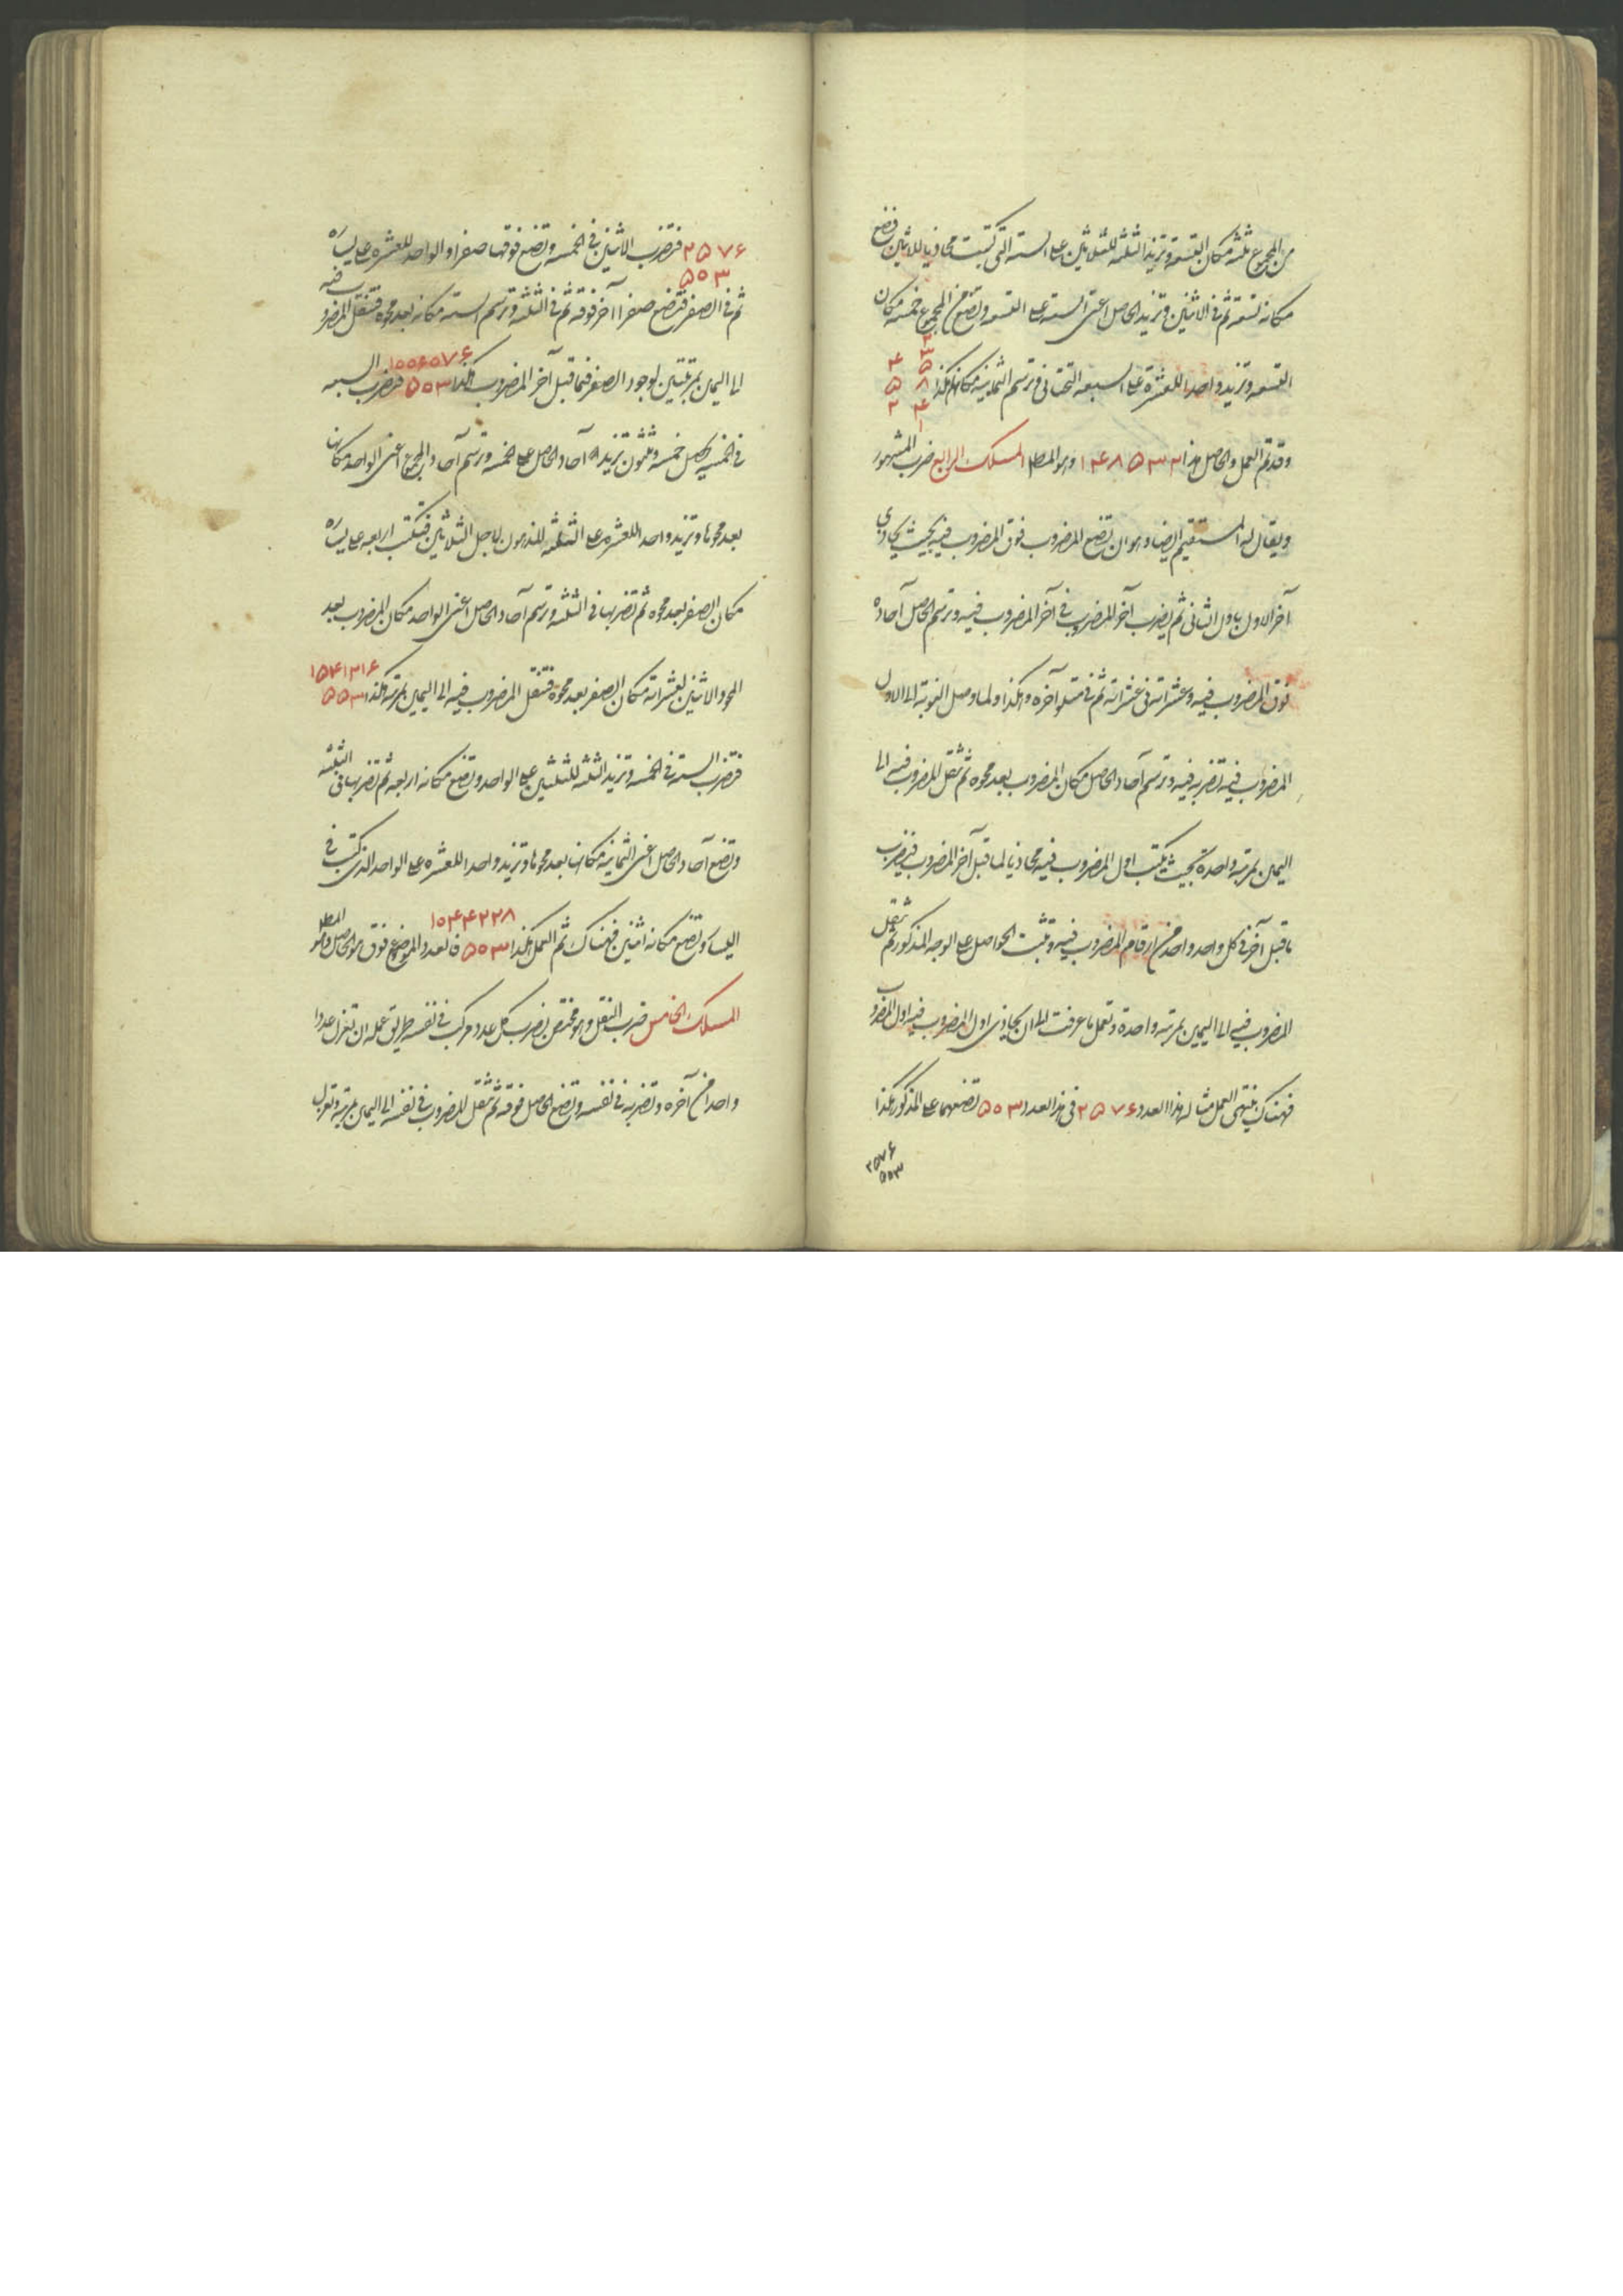 من المجموع ثلثه مكان التسعه وتزيد الثلثه للثلاثين على الستة التى كتبت محاذيا للاثنين فتضع
مكانه تسعة ثم فى الاثنين وتزيد الحاصل اعنى الستة على التسعه وتضع من المجموع خمسه مكان
التسعه وتزيد واحدا للعشرة على السبعه التحتانى وترسم الثمانية مكانها هكذا
وقد تم العمل والحاصل هذا ١۴٨۵٣٣٢ وهو المط المسلك الرابع ضرب المشهور
ويقال له المستقيم ايضا وهو ان تضع المضروب فوق المضروب فيه بحيث يحاذى
آخر الاول باول الثانى ثم يضرب آخر المضروب فى آخر المضروب فيه وترسم الحاصل آحاده
فوق المضروب فيه وعشراته فى عشراته ثم فى متلو آخره وهكذا ولما وصل النوبة الى الاول
المضروب فيه تضربه فيه وترسم آحاد الحاصل مكان المضروب بعد محوه ثم تنقل المضروب فيه الى
اليمين بمرتبة واحدة بحيث يكتب اول المضروب فيه محاذيا لما قبل آخر المضروب فيضرب
ما قبل آخر فى كل واحد واحد من ارقام المضروب فيه وتثبت الحواصل على الوجه المذكور ثم تنقل
المضروب فيه الى اليمين بمرتبه واحدة وتعمل ما عرفت الى ان يحاذى اول المضروب فيه اول المضروب
فهناك ينتهى العمل مثاله هذا العدد ٢۵٧۶ فى هذا العدد ۵٥٣ تضعهما على المذكور هكذا
٢۵٧۶
۵٥٣
٢۵٧۶ فتضرب الاثنين فى الخمسه وتضع فوقها صفرا والواحد للعشره على يساره
۵٥٣
ثم فى الصفر فتضع صفرا آخر فوقه ثم فى الثلثه وترسم الستة مكانه بعد محوه فتنقل المضروب فيه
١٥٥۶٥٧۶
الى اليمين بمرتبتين لوجود الصفر فيما قبل آخر المضروب هكذا ۵٥٣ فتضرب السبعه
فى الخمسه يحصل خمسه وثلثون تزيد آحاد الحاصل على الخمسه وترسم آحاد المجموع اعنى الواحد مكانها
بعد محوها وتزيد واحدا للعشره على الثلثه لاجل الثلاثين فيكتب اربعه على يساره
مكان الصفر بعد محوه ثم تضربها فى الثلثه وترسم آحاد الحاصل اعنى الواحد مكان المضروب بعد
المحو والاثنين لعشراته مكان الصفر بعد محوه فتنقل المضروب فيه الى اليمين بمرتبه هكذا
فتضرب السته فى الخمسه وتزيد الثلثه للثلثين على الواحد وتضع مكانه اربعه ثم تضربها فى الثلثه
وتضع آحاد الحاصل اعنى الثمانية مكانها بعد محوها وتزيد واحدا للعشره على الواحد الذى كتب فى
١٥۴۴٢٢٨
اليسار وتضع مكانه اثنين فهناك تم العمل هكذا ۵٥٣ فالعدد الموضوع فوق هو الحاصل وهو المط
المسلك الخامس ضرب النقل وهو مختص بضرب كل عدد مركب فى نفسه طريق عمله ان تعزل عددا
واحدا من آخره وتضربه فى نفسه وتضع الحاصل فوقه ثم تنقل المضروب فى نفسه الى اليمين بمرتبة وتعزل